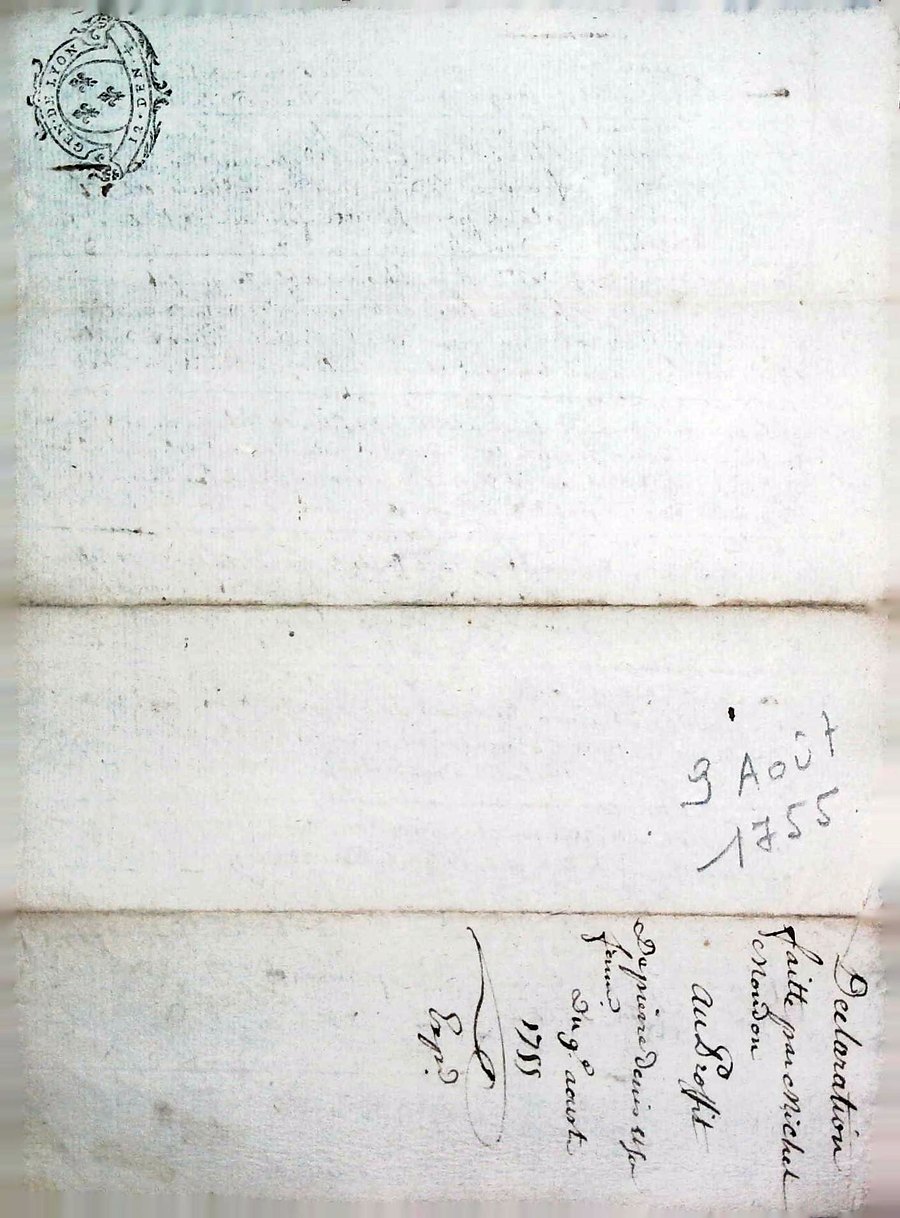 GEN·DE LYON
DEN·
9 AOÛT
1755
Declaration
faitte par Michel
Mondon
au Proffit
De pierre denis & sa
femme
Du 9e aoust
1755
Expd.